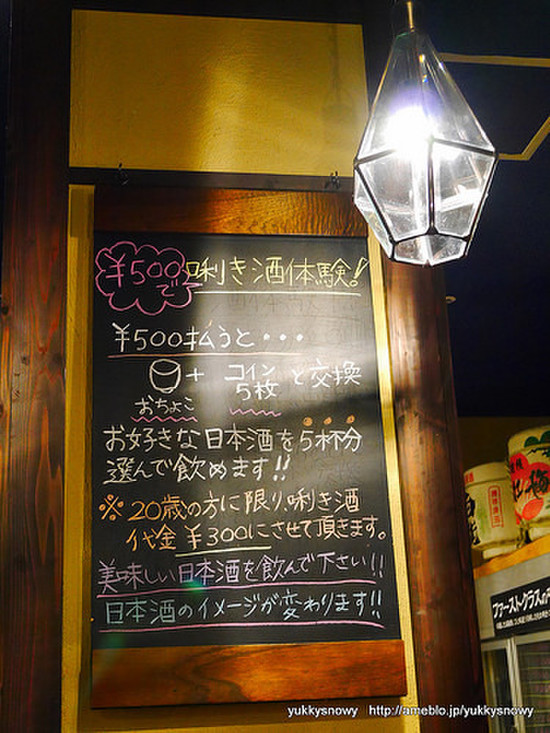 ¥500で
唎き酒体験!
¥500払うと・・・
+ コイン5枚 と交換
おちょこ
お好きな日本酒を5杯分
選んで飲めます!!
※20歳の方に限り、唎き酒
代金 ¥300にさせて頂きます。
美味しい日本酒を飲んで下さい!!
日本酒のイメージが変わります!!
ファーストグラスの
yukkysnowy http://ameblo.jp/yukkysnowy